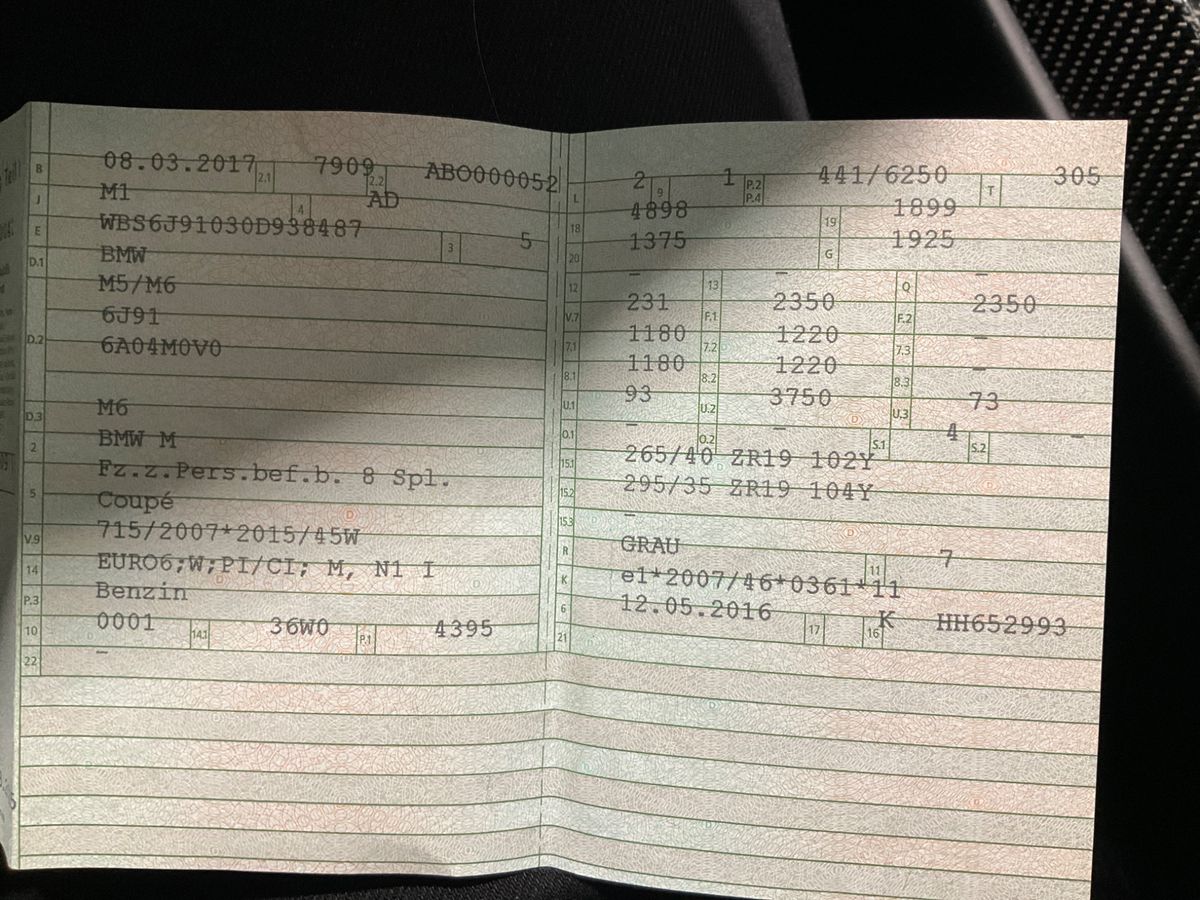 B 08.03.2017 2.1 7909 2.2 ABO000052
J M1 4 AD
E WBS6J91030D938487 3 5
D.1 BMW
M5/M6
6J91
D.2 6A04M0V0
D.3 M6
2 BMW M
Fz.z.Pers.bef.b. 8 Spl.
5 Coupé
V.9 715/2007*2015/45W
14 EURO6;W;PI/CI; M, N1 I
P.3 Benzin
10 0001 14.1 36W0 P.1 4395
22 –
L 2 9 1 P.2 P.4 441/6250 T 305
18 4898 19 1899
20 1375 G 1925
12 – 13 – Q –
V.7 231 F.1 2350 F.2 2350
7.1 1180 7.2 1220 7.3 –
8.1 1180 8.2 1220 8.3 –
U.1 93 U.2 3750 U.3 73
O.1 – O.2 – S.1 4 S.2 –
15.1 265/40 ZR19 102Y
15.2 295/35 ZR19 104Y
15.3 –
R GRAU 11 7
K e1*2007/46*0361*11
6 12.05.2016 17 K 16 HH652993
21